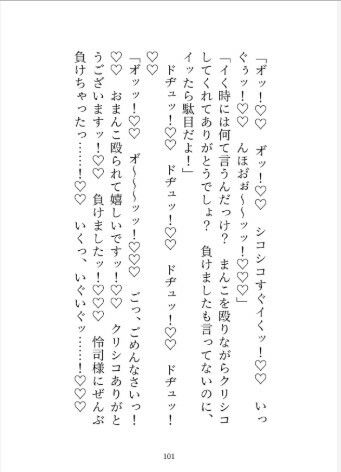 「オ゛ッ！♡♡　オ゛ッ！♡♡　シコシコすぐイくッ！♡♡　いっ
ぐぅッ！♡♡　んほお゛ぉ〜〜ッッ！♡♡♡」
「イく時には何て言うんだっけ？　まんこを殴りながらクリシコ
してくれてありがとうでしょ？　負けましたも言ってないのに、
イッたら駄目だよ！」
　ドヂュッ！♡♡　ドヂュッ！♡♡　ドヂュッ！♡♡　ドヂュッ！
♡♡
「オ゛ッッ！♡♡♡　オ゛〜〜〜ッッ！♡♡♡　ごっ、ごめんなさいっ！
♡♡　おまんこ殴られて嬉しいですッ！♡♡　クリシコありがと
うございますッッ！♡♡　負けましたッ！♡♡♡　怜司様にぜんぶ
負けちゃったっ……！♡♡　いくっ、いぐいぐッ……！♡♡♡
101